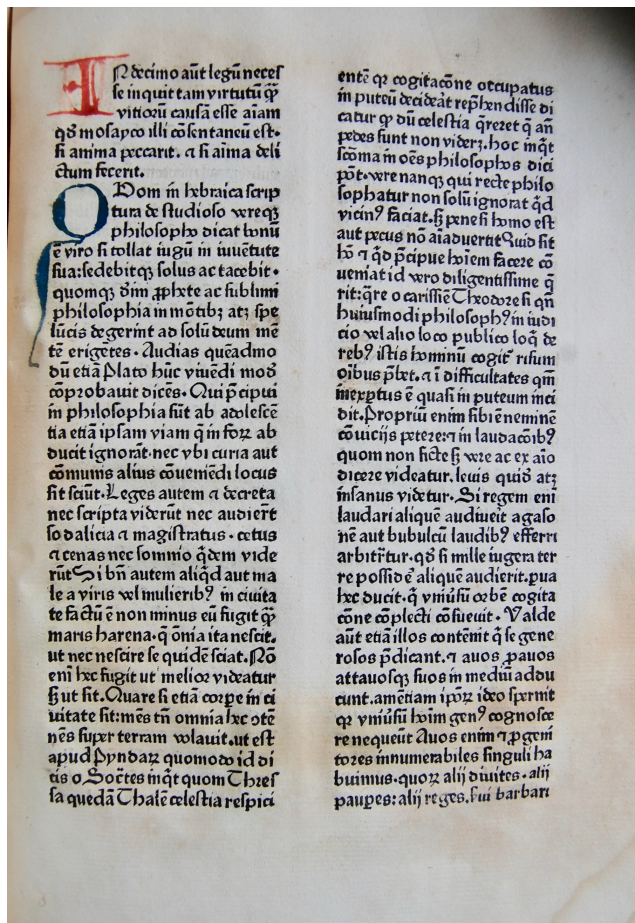 IN decimo aūt legū neces
se inquit tam virtutū qp̄
vitiorū causā esse aīam
qd̓ mosayco illi cōsentaneū est.
si anima peccarit. ⁊ si aīma deli
ctum fecerit.
QUom in hebraica scrip
tura de studioso vereqȝ
philosopho dicat bonū
ē viro si tollat iugū in iuvētute
sua: sedebitqȝ solus ac tacebit.
quomqȝ oīm ꝓphete ac sublimi
philosophia in mōtibȝ atȝ spe
lūcis degerint ad solū deum mē
tē erigētes. Audias quēadmo
dū etiā Plato hūc viuēdi modū
cōprobauit dicēs. Qui p̄cipui
in philosophia sūt ab adolescē
tia etiā ipsam viam q̄ in foꝝ ab
ducit ignorāt. nec vbi curia aut
cōmunis alius cōueniēdi locus
sit sciūt. Leges autem ⁊ decreta
nec scripta viderūt nec audierūt
sodalicia ⁊ magistratus. cetus
⁊ cenas nec somnio q̇dem vide
rūt Si bn̄ autem aliq̇d aut ma
le a viris vel mulieribꝰ in ciuita
te factū ē non minus eū fugit qp̄
maris harena. q̄ oīnia ita nescit.
ut nec nescire se quidē sciat. Nō
enī hec fugit ut melior videatur
sȝ ut sit. Quare si etiā corpe in ci
uitate sit: mēs tn̄ omnia hec ↄtē
nēs super terram volauit. ut est
apud Pyndaꝝ quomodo id di
cis o Socr̄tes inq̇t quom Thres
sa quedā Thalē celestia respici
entē qꝛ cogitacōne occupatus
in puteū decideāt rep̄hendisse di
catur qp dū celestia q̄reret q̄ an̄
pedes sunt non viderȝ. hoc inq̇t
scōma in oēs philosophos dici
pōt. vere nanqȝ qui recte philo
sophatur non solū ignorat q̇d
vicinꝰ faciat. sȝ pene si homo est
aut pecus nō aīaduertit Quid sit
hō ⁊ qd̓ p̄cipue hoīem facere cō
ueniat id vero diligentissime q̄
rit: q̄re o carissīe Theodore si qn̄
huiusmodi philosophꝰ in iudi
cio vel alio loco publico loq̇ de
rebꝰ istis hominū cogit̄ risum
oībus p̄bet. ⁊ ī difficultates qm̄
inexꝑtus ē quasi in puteum inci
dit. Propriū enim sibi ē neminē
cōuicijs petere: ⁊ in laudacōibꝰ
quom non ficte sȝ vere ac ex aīo
dicere videatur. leuis quid̓ atȝ
insanus videtur. Si regem enī
laudari aliquē audiueit agaso
nē aut bubulcū laudibꝰ efferri
arbitr̄tur. qd̓ si mille iugera ter
re possidē aliquē audierit. pua
hec ducit. q̄ vniūsū orbē cogita
cōne cōplecti cōsueuit. Valde
aūt etiā illos contēnit q̇ se gene
rosos p̄dicant. ⁊ auos ꝓauos
attauosqȝ suos in mediū addu
cunt. amētiam ipoꝝ ideo spernit
qꝛ vniūsū hoīm genꝰ cognosce
re nequeūt Auos enim ⁊ ꝓgeni
tores innumerabiles singuli ha
buimus. quoꝝ alij diuites. alij
pauꝑes: alij reges. sui barbari